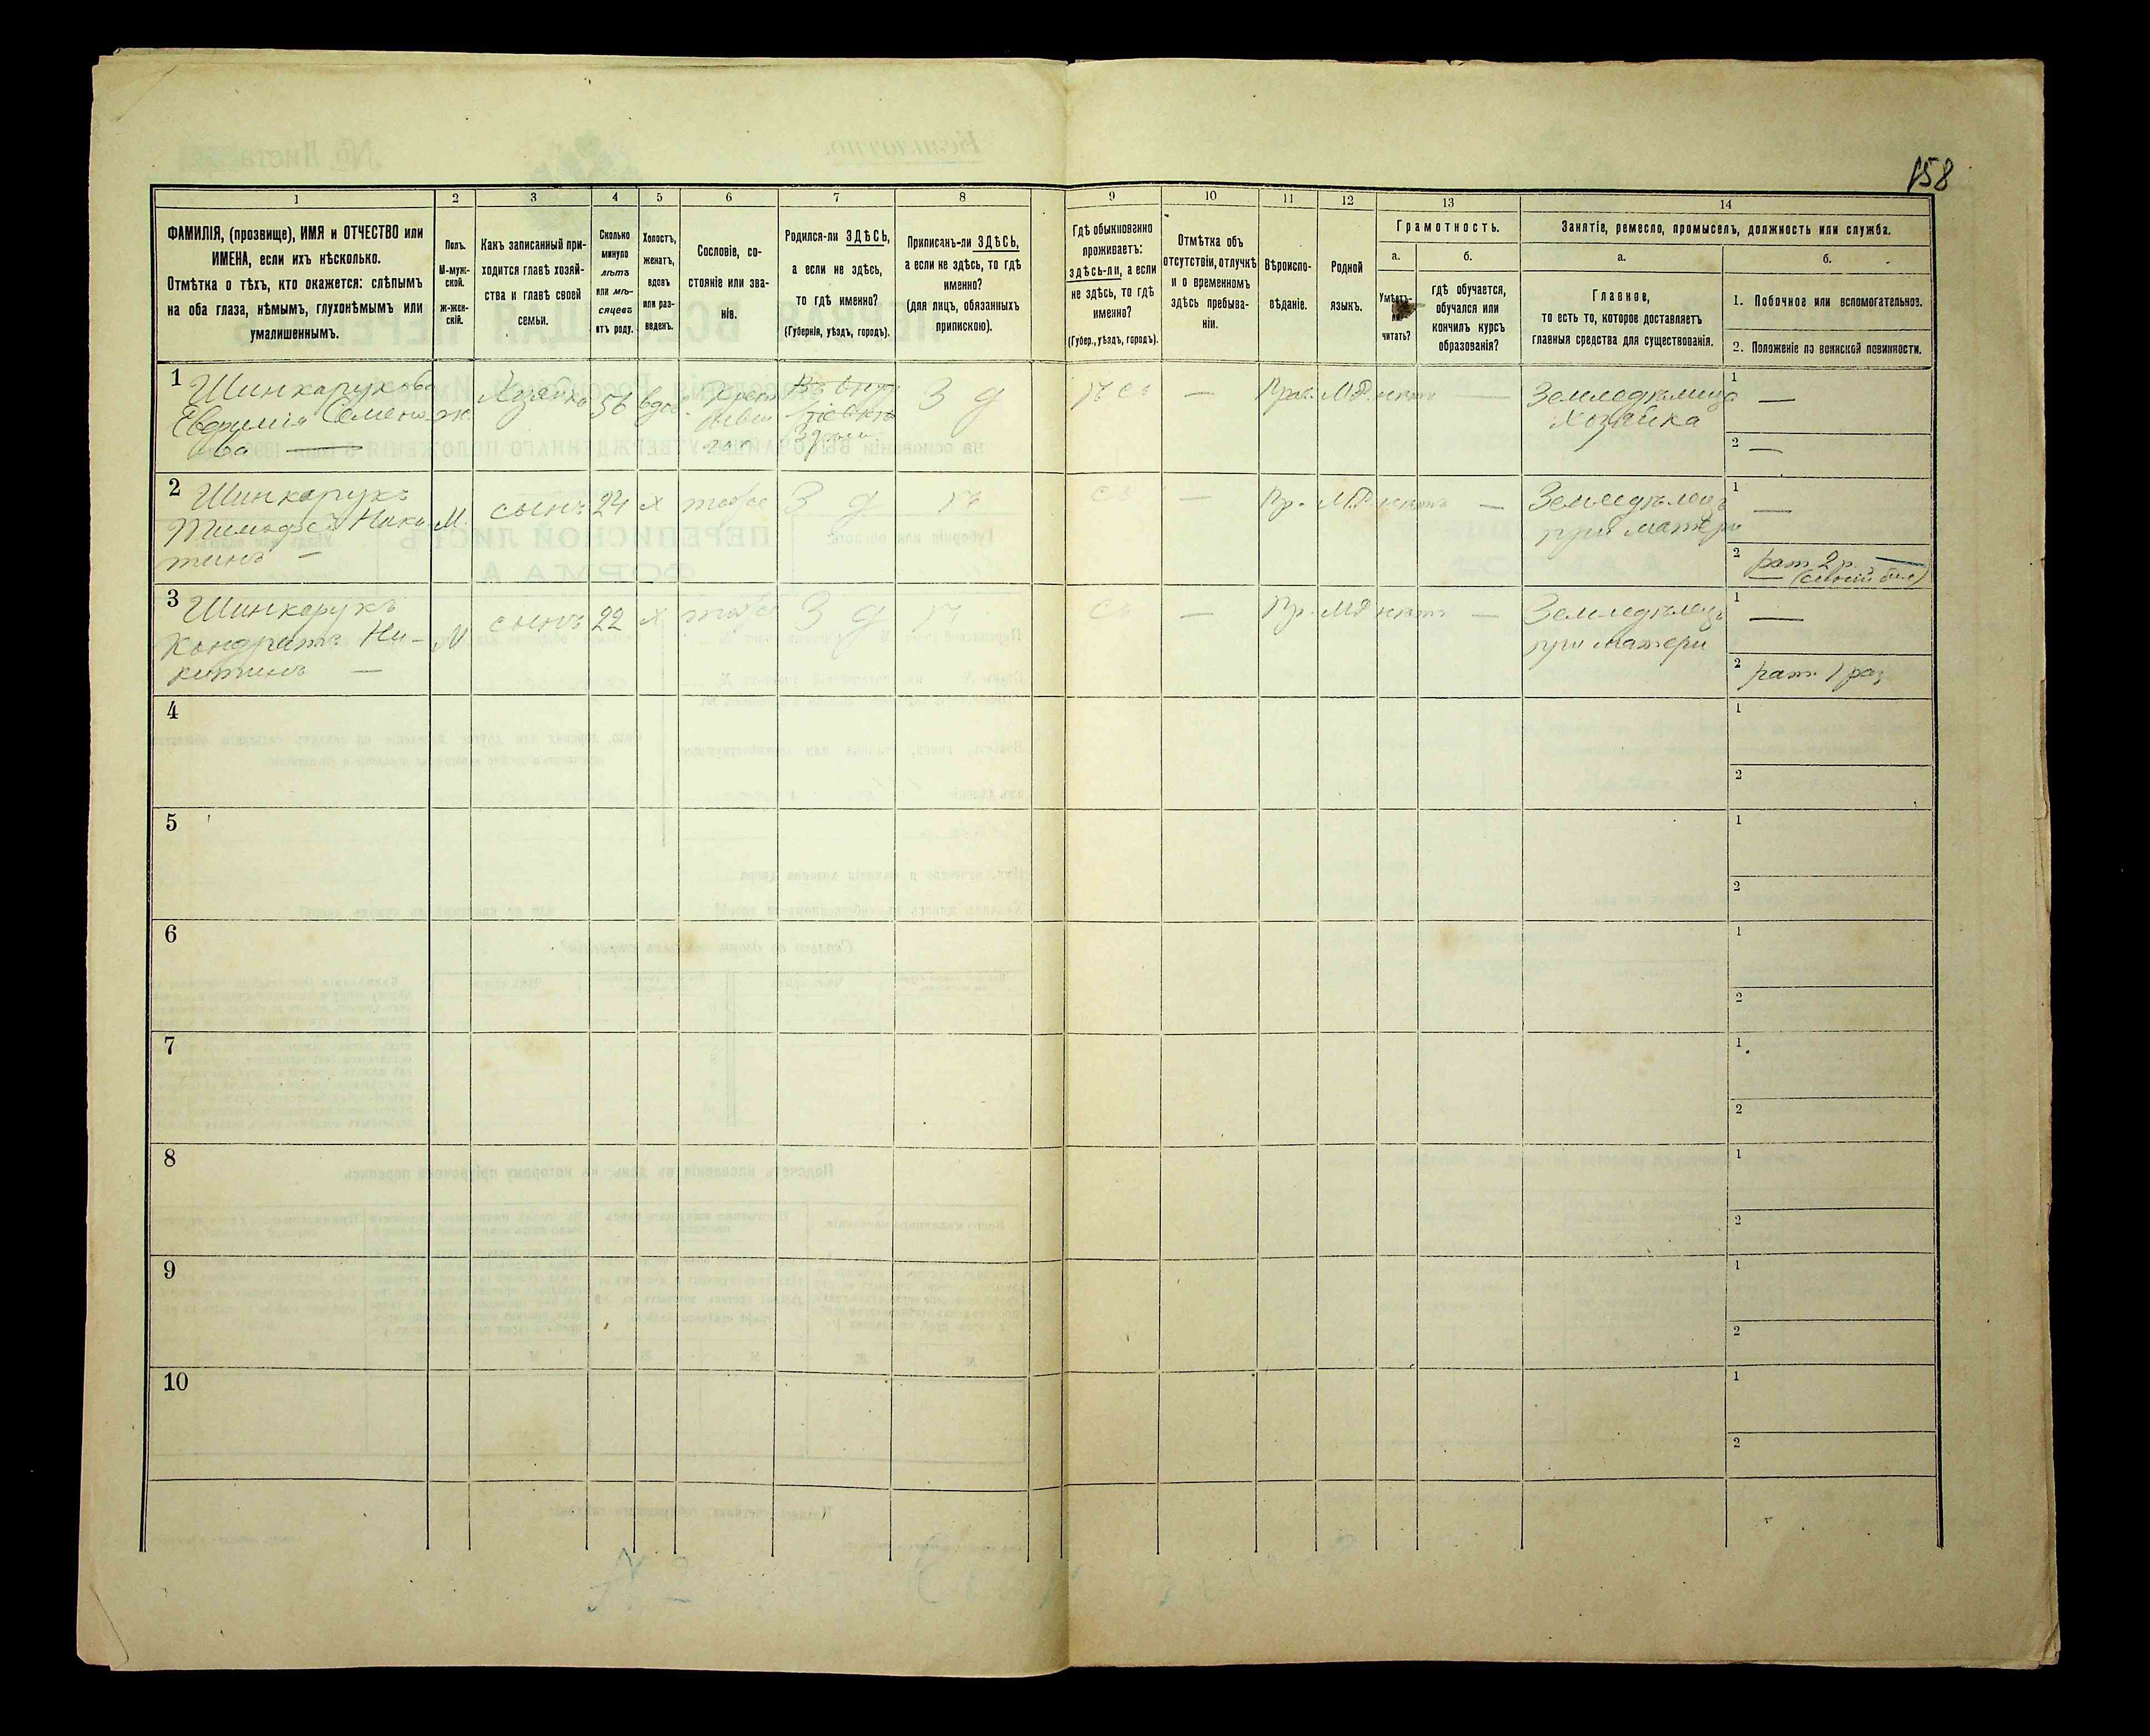 158
1
2
3
4
5
6
7
8
9
10
11
12
13
14
ФАМИЛІЯ, (прозвище), ИМЯ и ОТЧЕСТВО или
ИМЕНА, если ихъ нѣсколько.
Отмѣтка о тѣхъ, кто окажется: слѣпымъ
на оба глаза, нѣмымъ, глухонѣмымъ или
умалишеннымъ.
Полъ.
М-муж-
ской.
Ж-жен-
скій.
Какъ записанный при-
ходится главѣ хозяй-
ства и главѣ своей
семьи.
Сколько
минуло
лѣтъ
или мѣ-
сяцевъ
отъ роду.
Холостъ,
женатъ,
вдовъ
или раз-
веденъ.
Сословіе, со-
стояніе или зва-
ніе.
Родился-ли ЗДѢСЬ,
а если не здѣсь,
то гдѣ именно?
(Губернія, уѣздъ, городъ).
Приписанъ-ли ЗДѢСЬ,
а если не здѣсь, то гдѣ
именно?
(для лицъ, обязанныхъ
припискою).
Гдѣ обыкновенно
проживаетъ:
здѣсь-ли, а если
не здѣсь, то гдѣ
именно?
(Губер., уѣздъ, городъ).
Отмѣтка объ
отсутствіи, отлучкѣ
и о временномъ
здѣсь пребыва-
ніи.
Вѣроиспо-
вѣданіе.
Родной
языкъ.
Грамотность.
а.
читать?
б.
гдѣ обучается,
обучался или
кончилъ курсъ
образованія?
Занятіе, ремесло, промыселъ, должность или служба.
а.
Главное,
то есть то, которое доставляетъ
главныя средства для существованія.
б.
1. Побочное или вспомогательное.
2. Положеніе по воинской повинности.
1 Шинкарукова
Евфимія Семено-
ва —
ж.
Хозяйка
56
вдов.
З д
—
Прав.
М.Р.
нетъ
—
Земледѣлица
хозяйка
1 —
2 —
2 Шинкарукъ
Тимофей Ники-
тинъ —
М.
сынъ
24
х
З д
—
Пр.
М.Р.
нетъ
—
Земледѣлецъ
при матери
1 —
2 рат. 2 р.
3 Шинкарукъ
Кондратъ Ни-
китинъ —
М
сынъ
22
х
З д
—
Пр.
М.Р.
нетъ
—
Земледѣлецъ
при матери
1 —
2 рат. 1 раз
4
1
2
5
1
2
6
1
2
7
1
2
8
1
2
9
1
2
10
1
2